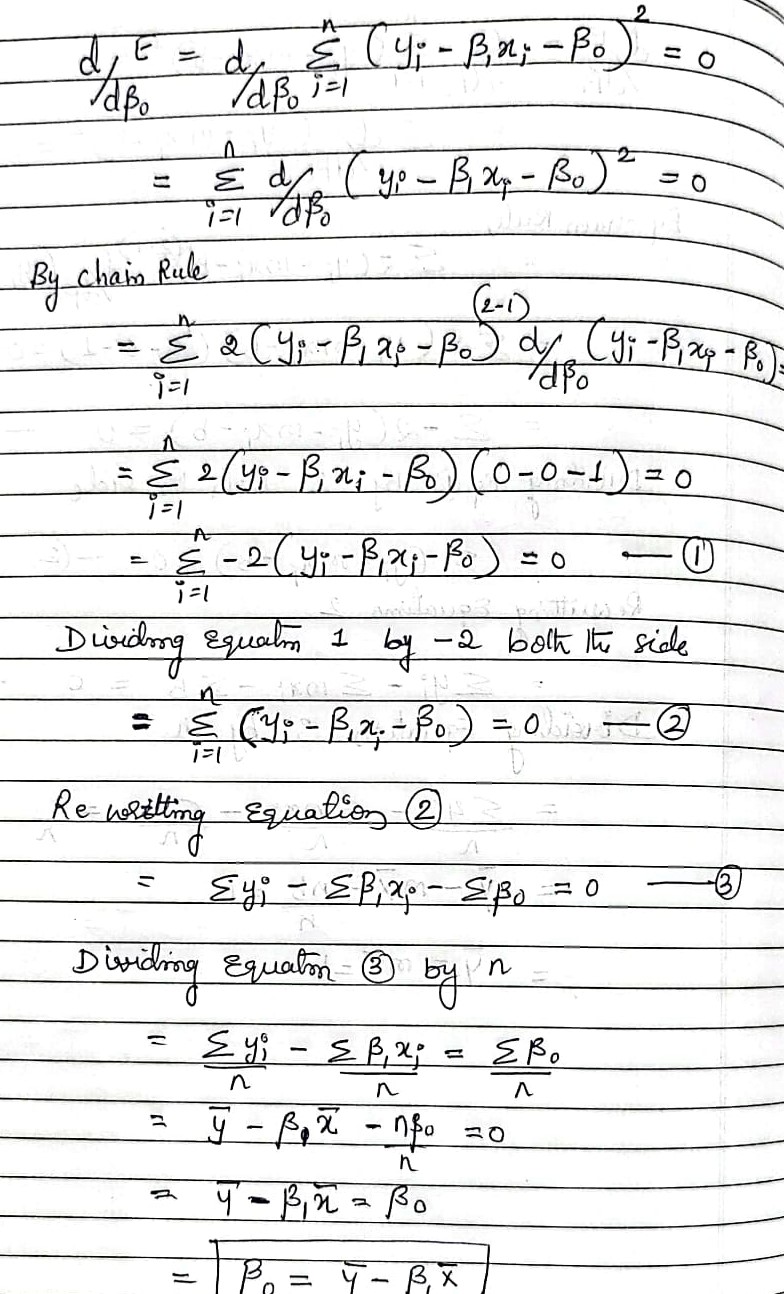 d/dβ₀ E = d/dβ₀ Σⁿᵢ₌₁ (yᵢ - β₁xᵢ - β₀)² = 0
= Σⁿᵢ₌₁ d/dβ₀ (yᵢ - β₁xᵢ - β₀)² = 0
By chain Rule
= Σⁿᵢ₌₁ 2(yᵢ - β₁xᵢ - β₀)⁽²⁻¹⁾ d/dβ₀ (yᵢ - β₁xᵢ - β₀) =
= Σⁿᵢ₌₁ 2(yᵢ - β₁xᵢ - β₀) (0-0-1) = 0
= Σⁿᵢ₌₁ -2(yᵢ - β₁xᵢ - β₀) = 0 — ①
Dividing Equatn 1 by -2 both the side
= Σⁿᵢ₌₁ (yᵢ - β₁xᵢ - β₀) = 0 — ②
Re-writting Equation ②
= Σyᵢ - Σβ₁xᵢ - Σβ₀ = 0 — ③
Dividing Equatn ③ by n
= Σyᵢ/n - Σβ₁xᵢ/n = Σβ₀/n
= ȳ - β₁x̄ - nβ₀/n = 0
= ȳ - β₁x̄ = β₀
= β₀ = ȳ - β₁x̄